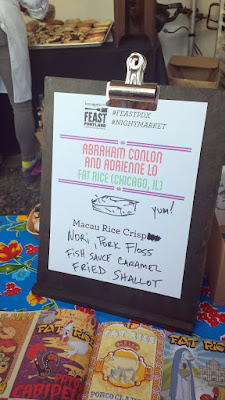 FEAST
PORTLAND
#FEASTPDX
#NIGHTMARKET
ABRAHAM CONLON
AND ADRIENNE LO
FAT RICE (CHICAGO, IL)
yum!
Macau Rice Crisp
NORI, PORK FLOSS
FISH SAUCE CARAMEL
FRIED SHALLOT
FAT RICE
FAT RICE
PORCO CLAMS